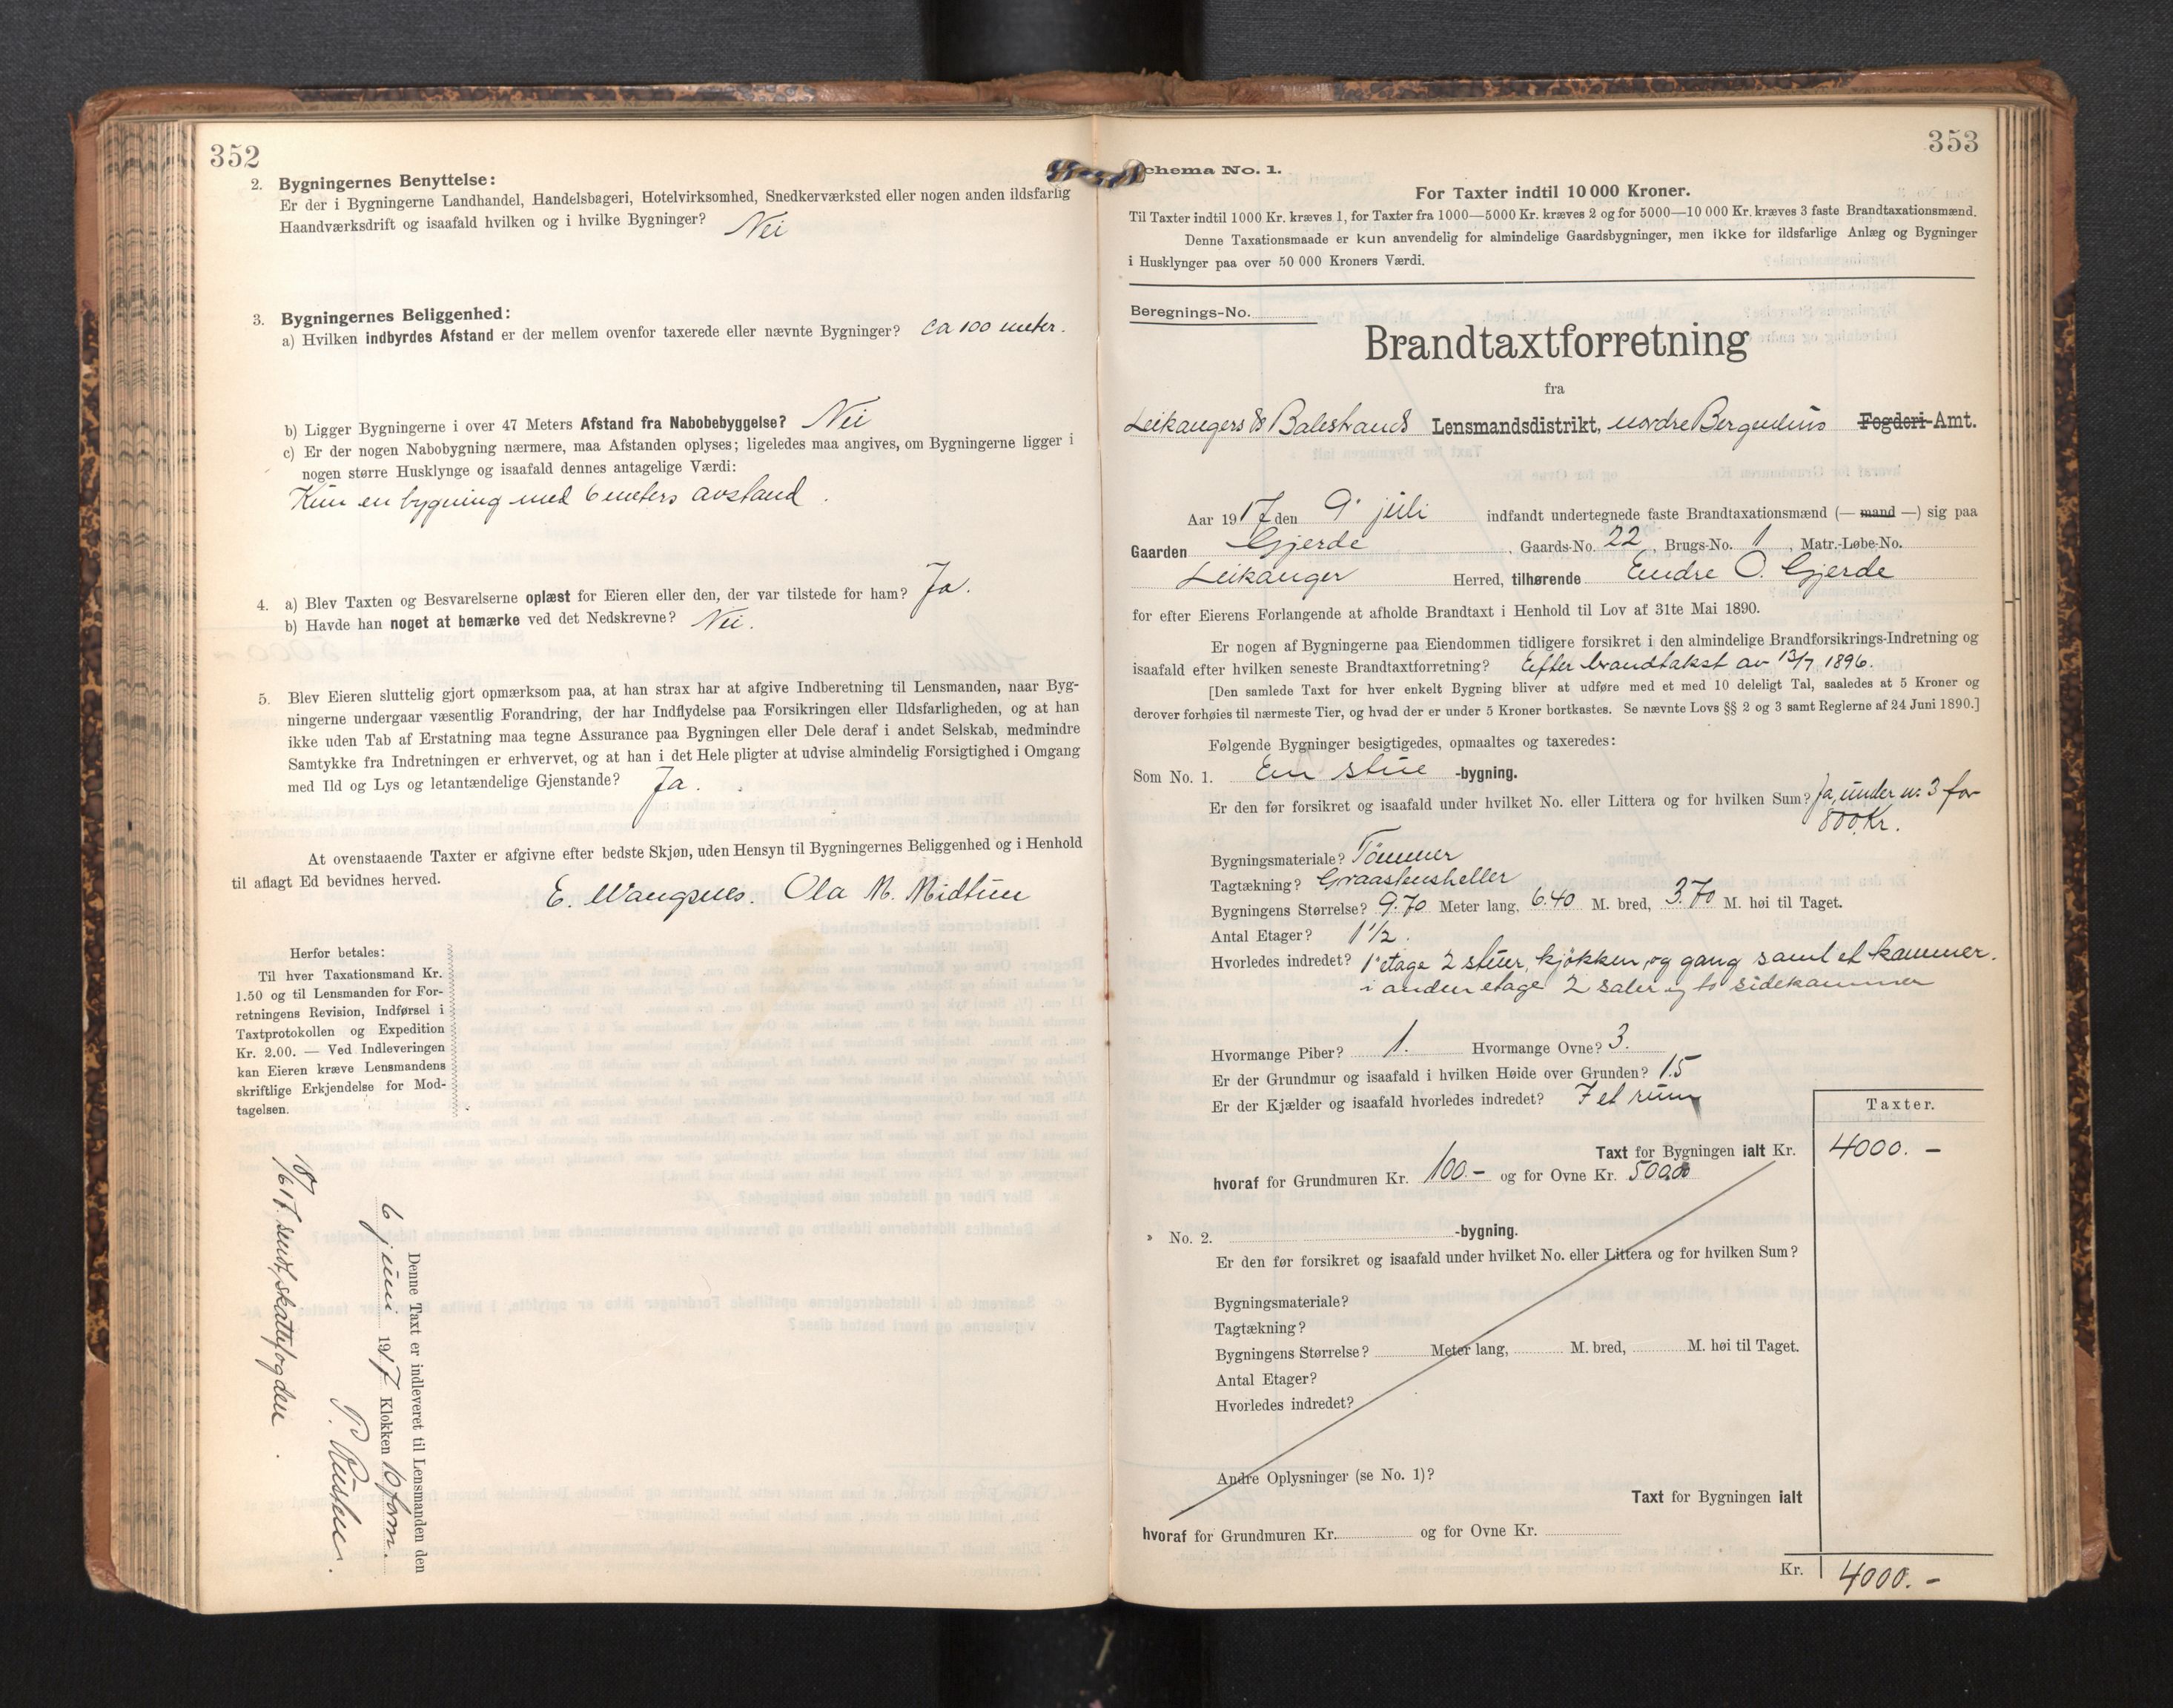 352
2. Bygningernes Benyttelse:
Er der i Bygningerne Landhandel, Handelsbageri, Hotelvirksomhed, Snedkerværksted eller nogen anden ildsfarlig
Haandværksdrift og isaafald hvilken og i hvilke Bygninger? Nei
3. Bygningernes Beliggenhed:
a) Hvilken indbyrdes Afstand er der mellem ovenfor taxerede eller nævnte Bygninger? Ca 100 meter.
b) Ligger Bygningerne i over 47 Meters Afstand fra Nabobebyggelse? Nei
c) Er der nogen Nabobygning nærmere, maa Afstanden oplyses; ligeledes maa angives, om Bygningerne ligger i
nogen større Husklynge og isaafald dennes antagelige Værdi:
Kun en bygning med 6 meters avstand.
4. a) Blev Taxten og Besvarelserne oplæst for Eieren eller den, der var tilstede for ham? Ja.
b) Havde han noget at bemærke ved det Nedskrevne? Nei.
5. Blev Eieren sluttelig gjort opmærksom paa, at han strax har at afgive Indberetning til Lensmanden, naar Byg-
ningerne undergaar væsentlig Forandring, der har Indflydelse paa Forsikringen eller Ildsfarligheden, og at han
ikke uden Tab af Erstatning maa tegne Assurance paa Bygningen eller Dele deraf i andet Selskab, medmindre
Samtykke fra Indretningen er erhvervet, og at han i det Hele pligter at udvise almindelig Forsigtighed i Omgang
med Ild og Lys og letantændelige Gjenstande? Ja.
At ovenstaaende Taxter er afgivne efter bedste Skjøn, uden Hensyn til Bygningernes Beliggenhed og i Henhold
til aflagt Ed bevidnes herved.
E. Wangsnes. Ola M. Midtun
Herfor betales:
Til hver Taxationsmand Kr.
1.50 og til Lensmanden for For-
retningens Revision, Indførsel i
Taxtprotokollen og Expedition
Kr. 2.00. — Ved Indleveringen
kan Eieren kræve Lensmandens
skriftlige Erkjendelse for Mod-
tagelsen.
Denne Taxt er indleveret til Lensmanden den
6 juni 1917 Klokken 10 form.
sendt skattefogden.
353
Schema No. 1.
For Taxter indtil 10 000 Kroner.
Til Taxter indtil 1000 Kr. kræves 1, for Taxter fra 1000—5000 Kr. kræves 2 og for 5000—10 000 Kr. kræves 3 faste Brandtaxationsmænd.
Denne Taxationsmaade er kun anvendelig for almindelige Gaardsbygninger, men ikke for ildsfarlige Anlæg og Bygninger
i Husklynger paa over 50 000 Kroners Værdi.
Beregnings-No.
Brandtaxtforretning
fra
Leikangers & Balestrands Lensmandsdistrikt, nordre Bergenhus Fogderi-Amt.
Aar 1917 den 9' juli indfandt undertegnede faste Brandtaxationsmænd (— mand —) sig paa
Gaarden Gjerde, Gaards-No. 22, Brugs-No. 1, Matr.-Løbe-No.
Leikanger Herred, tilhørende Endre O. Gjerde
for efter Eierens Forlangende at afholde Brandtaxt i Henhold til Lov af 31te Mai 1890.
Er nogen af Bygningerne paa Eiendommen tidligere forsikret i den almindelige Brandforsikrings-Indretning og
isaafald efter hvilken seneste Brandtaxtforretning? Efter brandtakst av 13/7 1896.
[Den samlede Taxt for hver enkelt Bygning bliver at udføre med et med 10 deleligt Tal, saaledes at 5 Kroner og
derover forhøies til nærmeste Tier, og hvad der er under 5 Kroner bortkastes. Se nævnte Lovs §§ 2 og 3 samt Reglerne af 24 Juni 1890.]
Følgende Bygninger besigtigedes, opmaaltes og taxeredes:
Som No. 1. En stue -bygning.
Er den før forsikret og isaafald under hvilket No. eller Littera og for hvilken Sum? Ja, under nr 3 for
800 Kr.
Bygningsmateriale? Tömmer
Tagtækning? Graastensheller
Bygningens Størrelse? 9.70 Meter lang, 6.40 M. bred, 3.70 M. høi til Taget.
Antal Etager? 1 1/2.
Hvorledes indredet? 1' etage 2 stuer, kjökken, og gang samt et kammer.
i anden etage 2 saler og to sidekammer
Hvormange Piber? 1. Hvormange Ovne? 3.
Er der Grundmur og isaafald i hvilken Høide over Grunden? 1.5
Er der Kjælder og isaafald hvorledes indredet? I et rum
Taxter.
Taxt for Bygningen ialt Kr. 4000.-
hvoraf for Grundmuren Kr. 100.- og for Ovne Kr. 500.00
» No. 2. -bygning.
Er den før forsikret og isaafald under hvilket No. eller Littera og for hvilken Sum?
Bygningsmateriale?
Tagtækning?
Bygningens Størrelse? Meter lang, M. bred, M. høi til Taget.
Antal Etager?
Hvorledes indredet?
Andre Oplysninger (se No. 1)?
Taxt for Bygningen ialt
hvoraf for Grundmuren Kr. og for Ovne Kr.
Kr. 4000.-